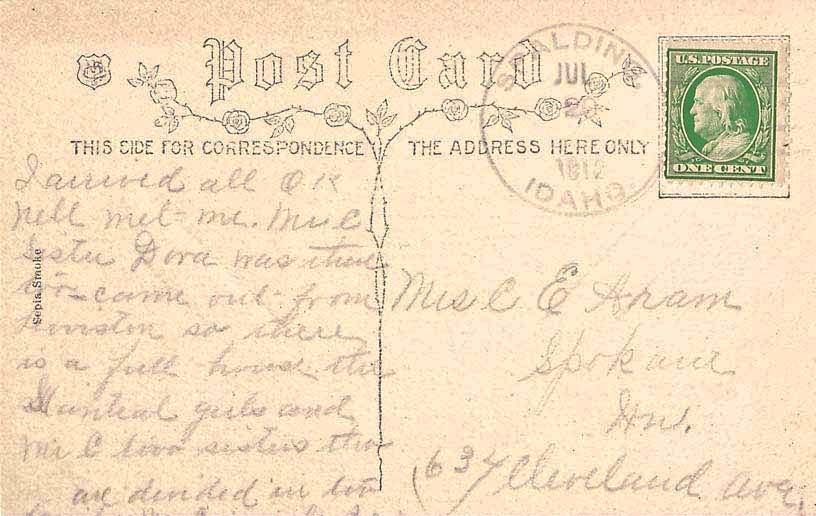 Post Card
THIS SIDE FOR CORRESPONDENCE
THE ADDRESS HERE ONLY
SPALDING
JUL
2
1912
IDAHO.
U.S. POSTAGE
ONE CENT
Sepia Smoke
I arrived all OK
Nell met me. Mr C
Sister Dora was there
too - came out from
so there
is a full house the
girls and
Mr C two sisters the
are divided in two
Mrs C E Aram
Spokane
Wn.
637 Cleveland ave,